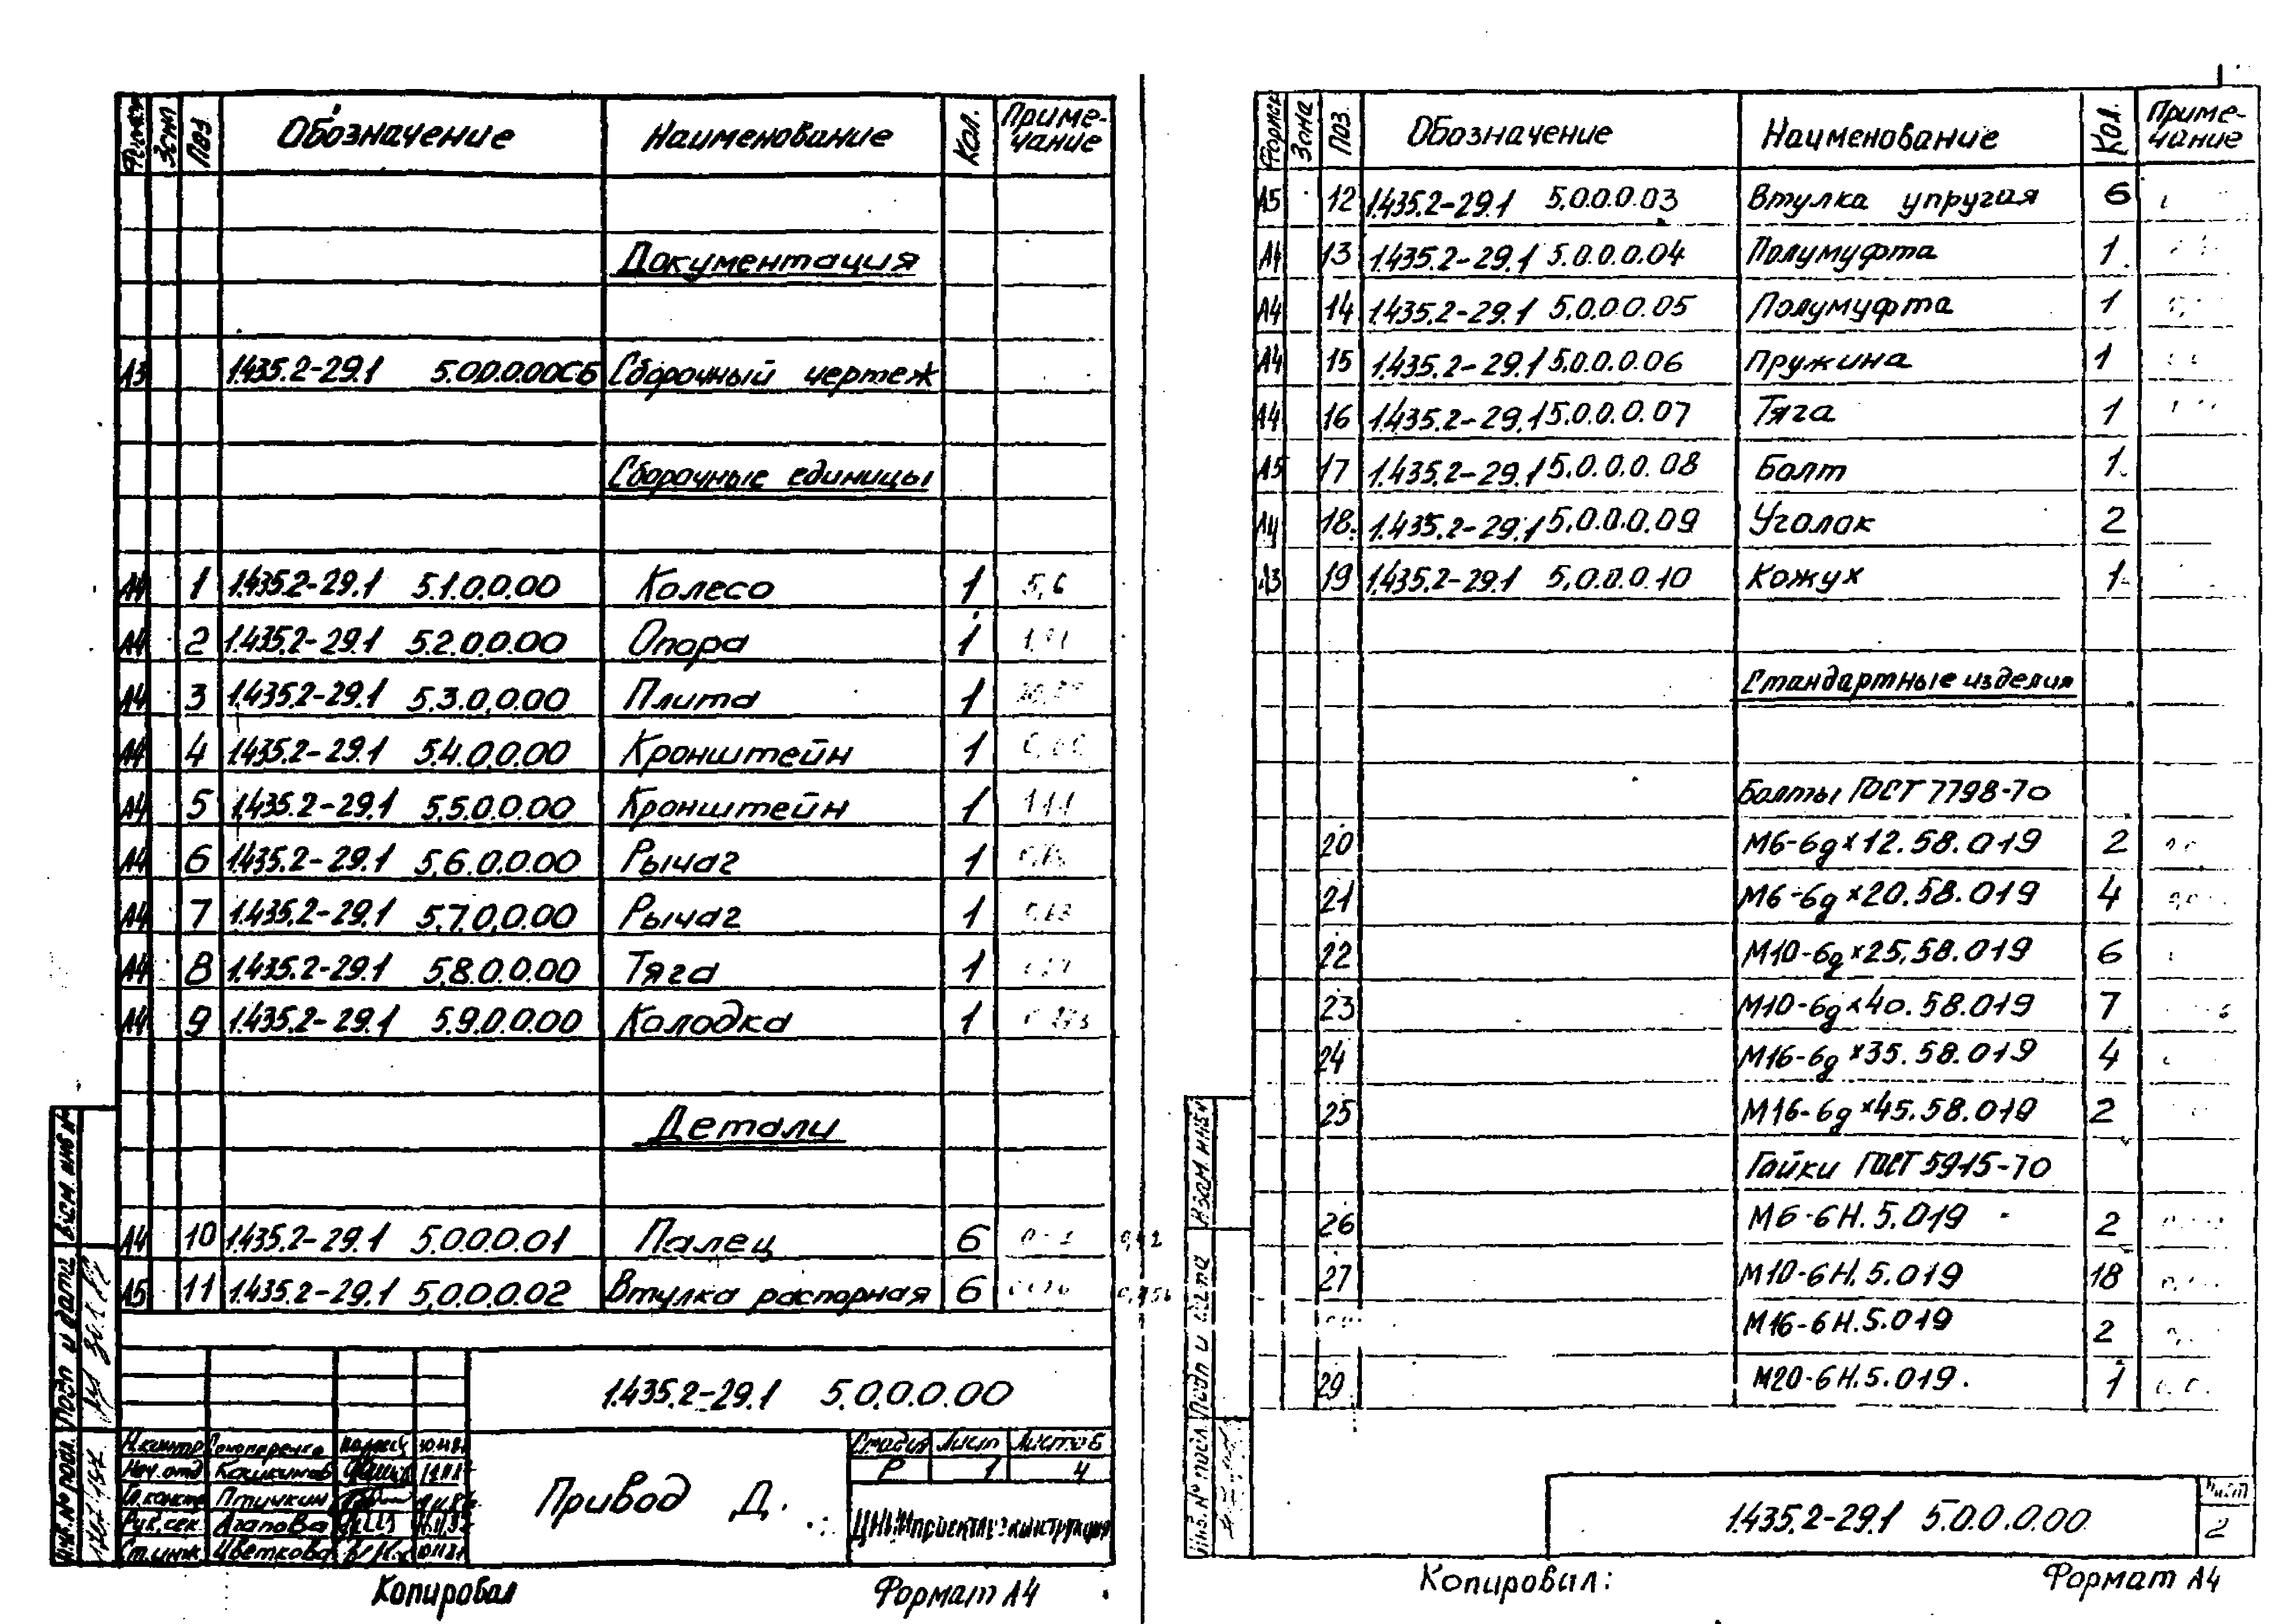 Формат Зона Поз. Обозначение Наименование Кол. Приме-
чание
Документация
А3 1.435.2-29.1 5.0.0.0.00СБ Сборочный чертеж
Сборочные единицы
А4 1 1.435.2-29.1 5.1.0.0.00 Колесо 1 5,6
А4 2 1.435.2-29.1 5.2.0.0.00 Опора 1
А4 3 1.435.2-29.1 5.3.0.0.00 Плита 1
А4 4 1.435.2-29.1 5.4.0.0.00 Кронштейн 1
А4 5 1.435.2-29.1 5.5.0.0.00 Кронштейн 1
А4 6 1.435.2-29.1 5.6.0.0.00 Рычаг 1
А4 7 1.435.2-29.1 5.7.0.0.00 Рычаг 1
А4 8 1.435.2-29.1 5.8.0.0.00 Тяга 1
А4 9 1.435.2-29.1 5.9.0.0.00 Колодка 1
Детали
А4 10 1.435.2-29.1 5.0.0.0.01 Палец 6
А5 11 1.435.2-29.1 5.0.0.0.02 Втулка распорная 6
1.435.2-29.1 5.0.0.0.00
Н.контр
Нач.отд
Гл.констр Птичкин
Рук.сек. Агапова
Ст.инж Цветкова
Привод Д.
Стадия Лист Листов
Р 1 4
ЦНИИпроектлегконструкция
Инв.№ подл. Подп и дата Взам. инв №
Копировал Формат А4
Формат Зона Поз. Обозначение Наименование Кол. Приме-
чание
А5 12 1.435.2-29.1 5.0.0.0.03 Втулка упругая 6
А4 13 1.435.2-29.1 5.0.0.0.04 Полумуфта 1
А4 14 1.435.2-29.1 5.0.0.0.05 Полумуфта 1
А4 15 1.435.2-29.1 5.0.0.0.06 Пружина 1
А4 16 1.435.2-29.1 5.0.0.0.07 Тяга 1
А5 17 1.435.2-29.1 5.0.0.0.08 Болт 1
А4 18 1.435.2-29.1 5.0.0.0.09 Уголок 2
А3 19 1.435.2-29.1 5.0.0.0.10 Кожух 1
Стандартные изделия
Болты ГОСТ 7798-70
20 М6-6g×12.58.019 2
21 М6-6g×20.58.019 4
22 М10-6g×25.58.019 6
23 М10-6g×40.58.019 7
24 М16-6g×35.58.019 4
25 М16-6g×45.58.019 2
Гайки ГОСТ 5915-70
26 М6-6Н.5.019 2
27 М10-6Н.5.019 18
М16-6Н.5.019 2
29 М20-6Н.5.019. 1
Инв.№ подл Подп и дата Взам инв №
1.435.2-29.1 5.0.0.0.00
Лист
2
Копировал: Формат А4